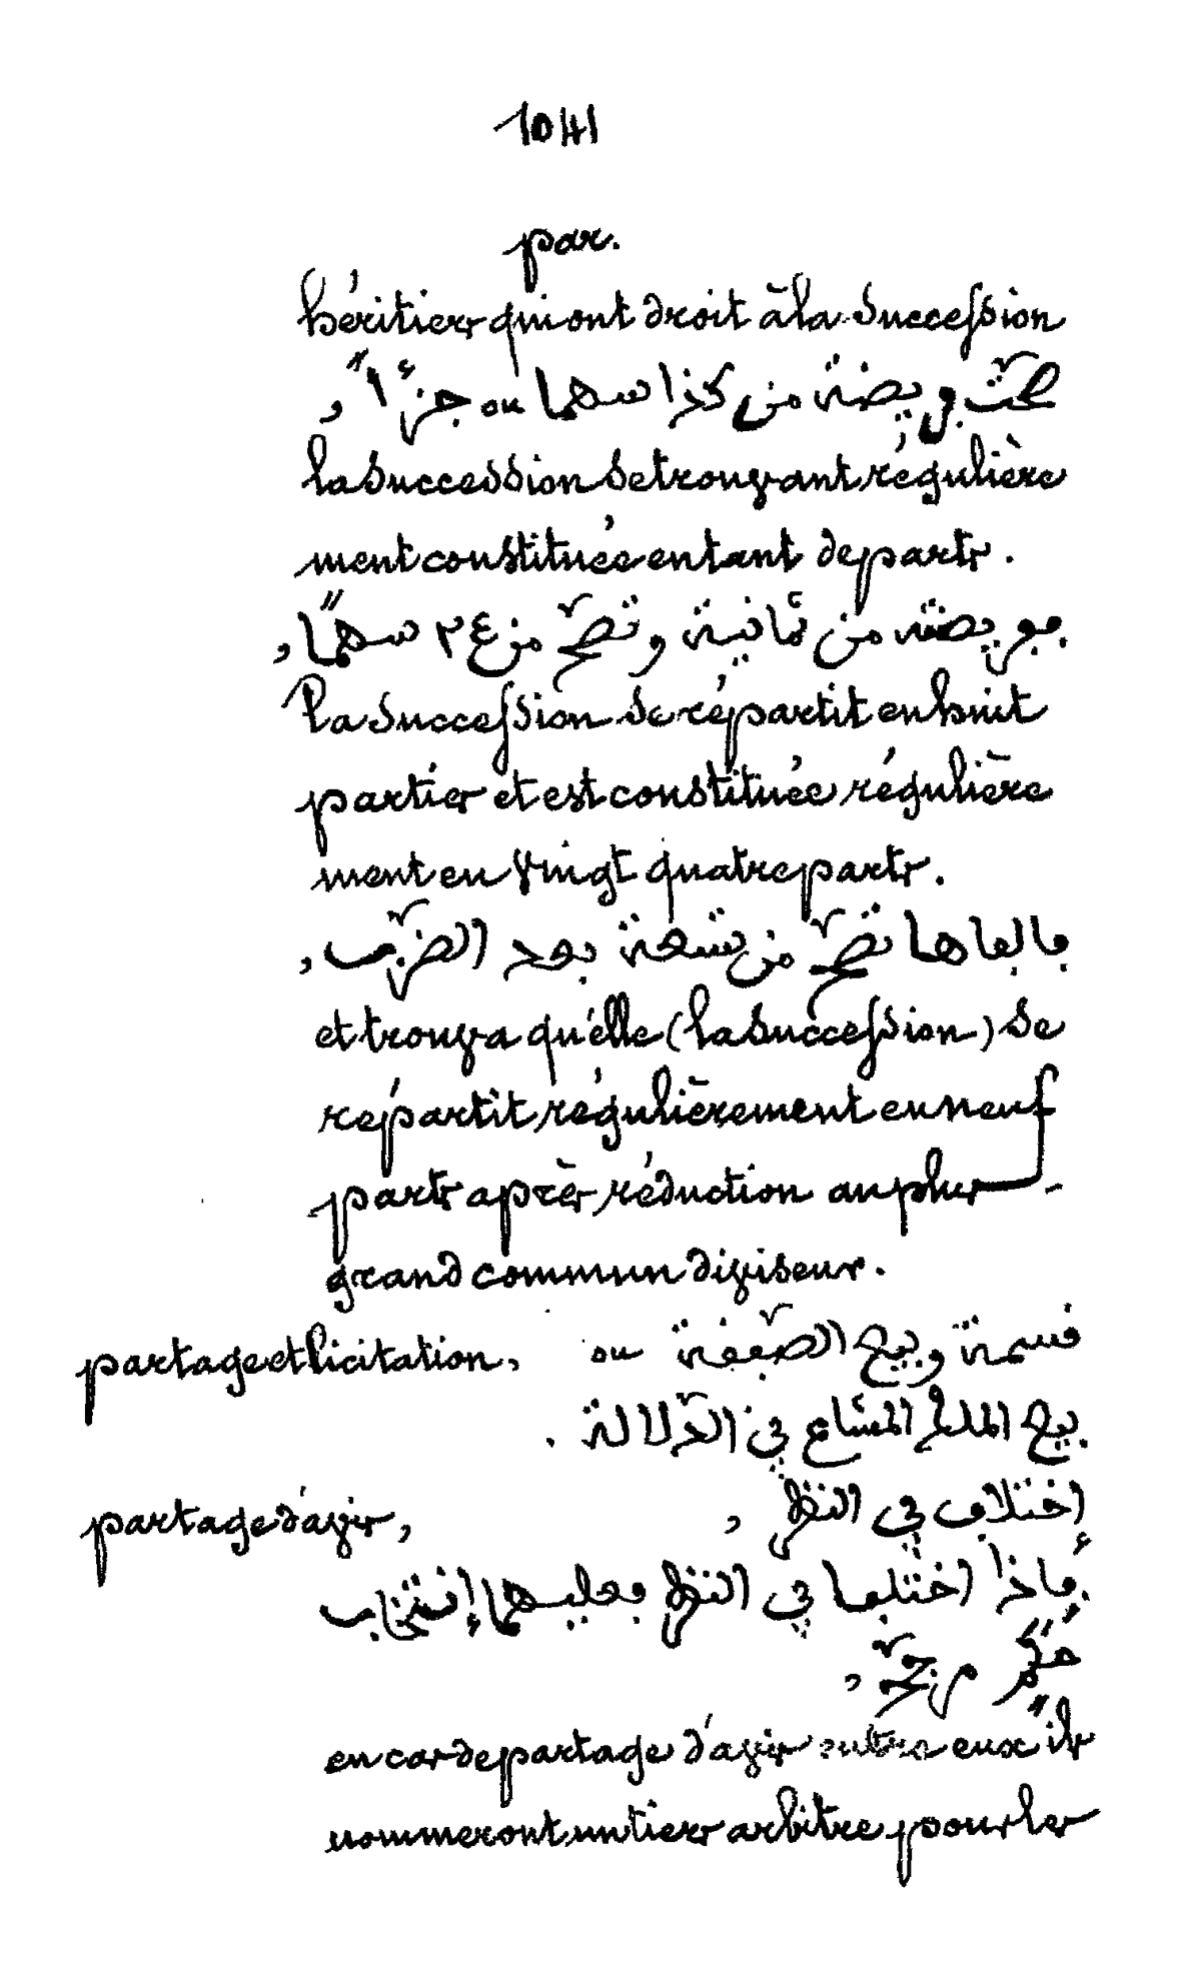 1041
par.
héritiers qui ont droit à la succession
صحّت فريضة من كذا سهما ou جزءًا ,
la succession se trouvant régulière
ment constituée en tant de parts.
ففريضته من ثمانية وتصحّ من ٢٤ سهمًا ,
la succession se répartit en huit
parties et est constituée régulière
ment en vingt quatre parts.
فالفاها تصحّ من تسعة بعد الضّرب ,
et trouva qu'elle (la succession) se
répartit régulièrement en neuf
parts après réduction au plus
grand commun diviseur.
partage et licitation, قسمة وبيع الصّفقة ou
بيع الملك المشاع في الدّلالة .
partage d'avis, إختلاف في النظر ,
فإذا اختلفا في النظر فعليهما إنتخاب
حَكَمٍ مرجّح ,
en cas de partage d'avis entre eux ils
nommeront un tiers arbitre pour les